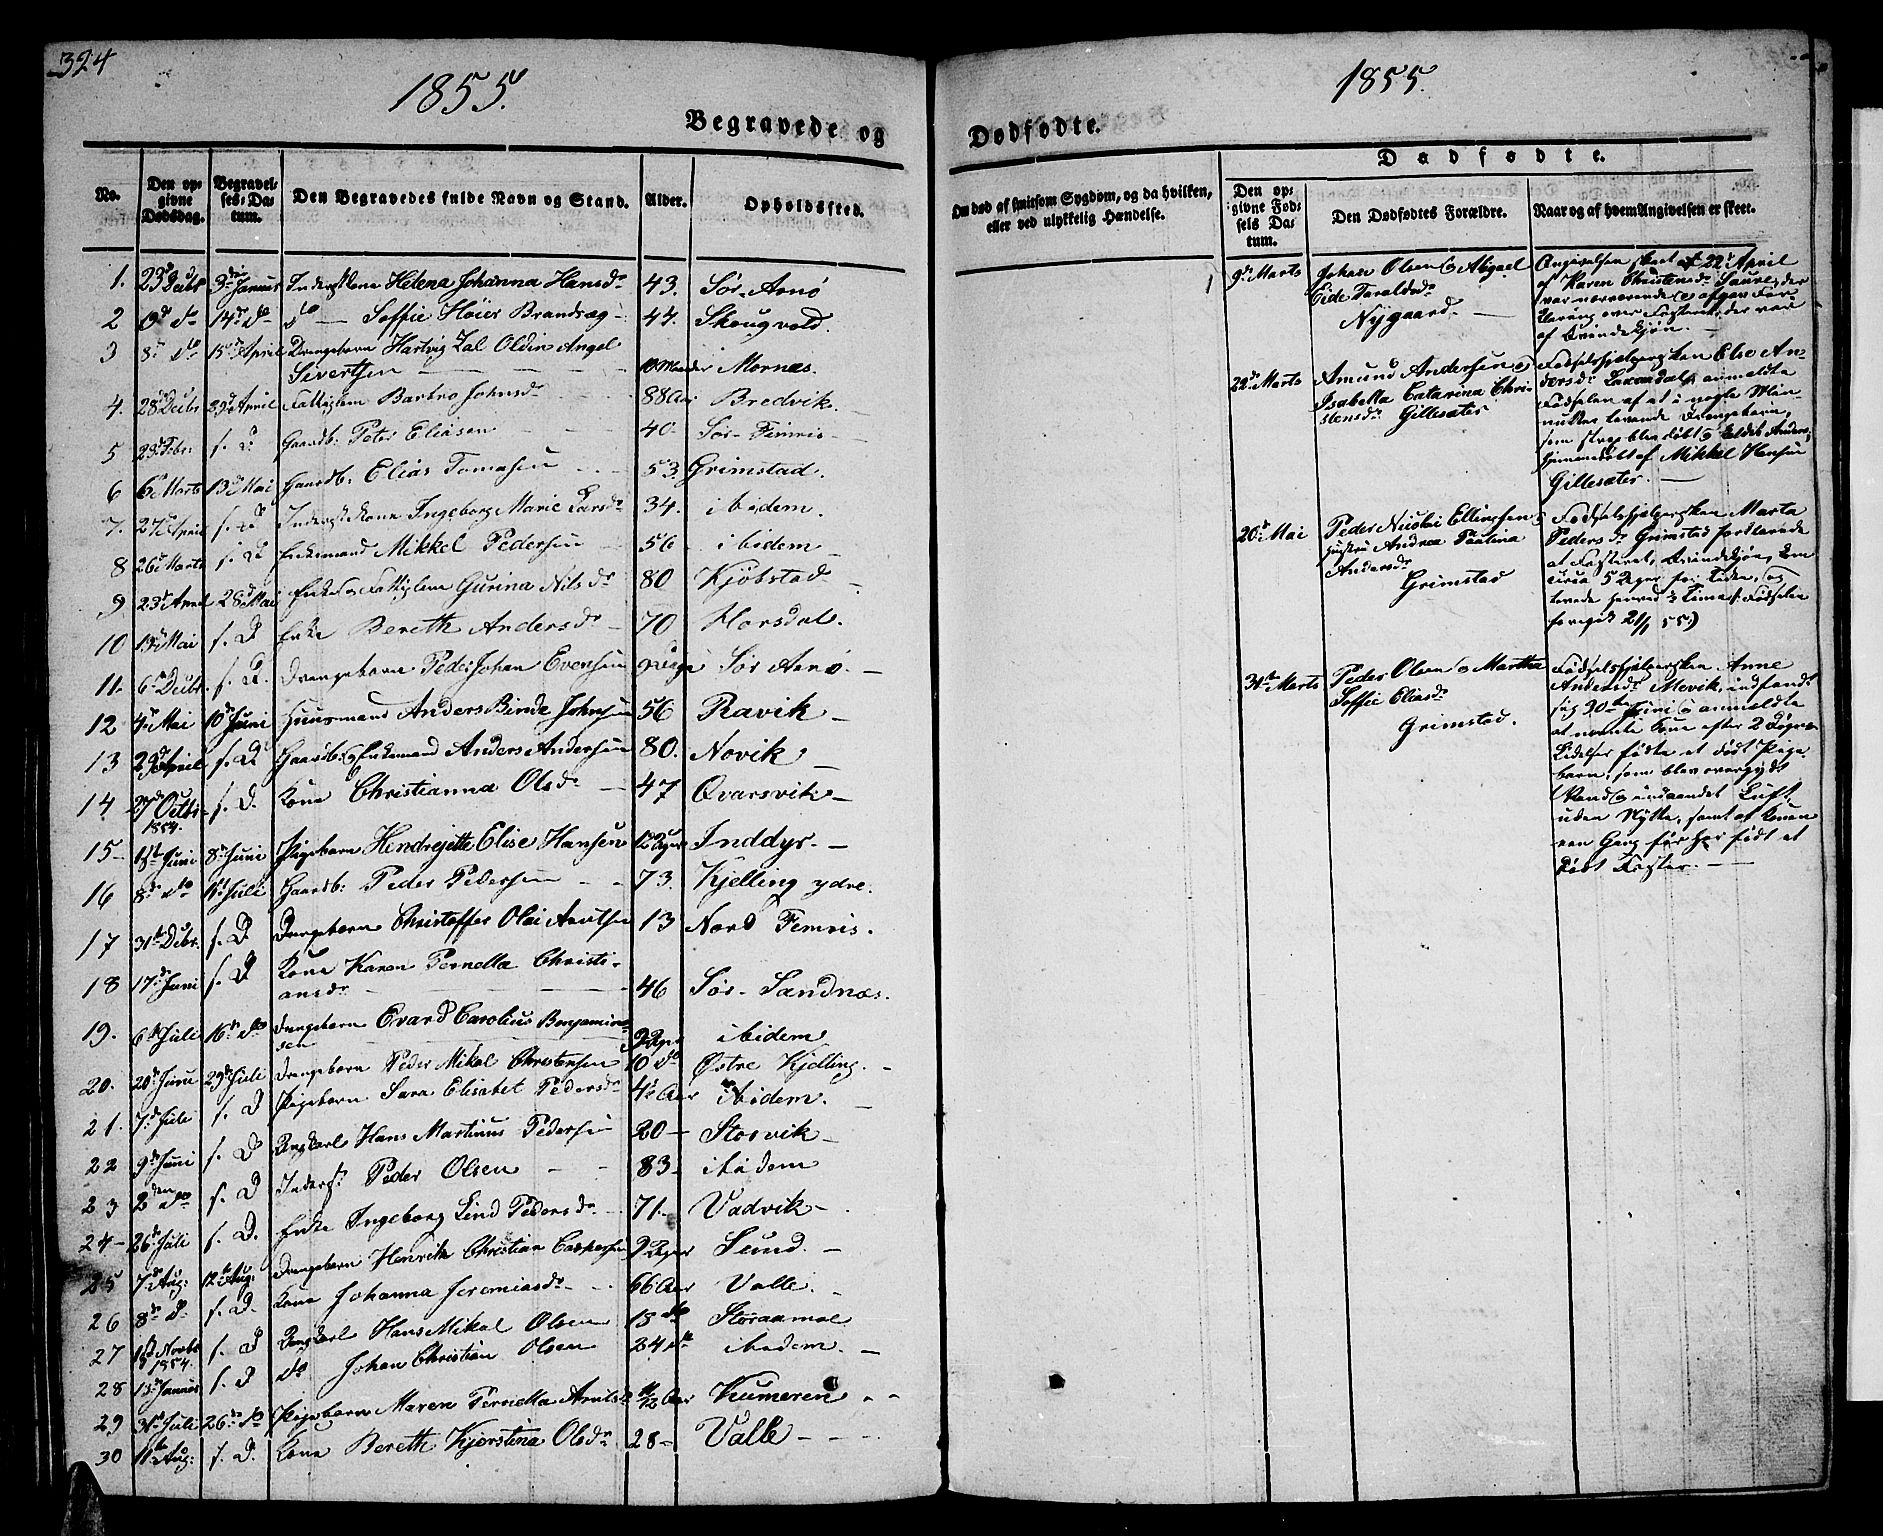 324
1855.
Begravede og
No.
Den opgivne Dødsdag.
Begravelses-Datum.
Den Begravedes fulde Navn og Stand.
Alder.
Opholdssted.
1. 23de Decbr 3die Januar Inderstkone Helena Johanna Hansdr 43. Sør-Arnø
2 9de do 14de do do — Soffie Høier Brandsæg 47. Skougvold.
3 8de do 15de April Drengebarn Hartvig Zal Oldin Angel
Sivertsen — 10 Maaneder Mornæs.
4. 28de Decbr 29de April Fattiglem Barbro Johnsdr 88 Aar Bredvik
5 23de Febr. s. D. Gaardb: Peter Eliasen 40 Sør-Femris
6 6te Marts 13de Mai Gaardb: Elias Tomasen 53 Grimstad.
7. 27de April s. D. Inderstkone Ingeborg Marie Larsdr 34. ibidem.
8 26de Marts s. D. Enkemand Mikkel Pedersen 56 ibidem
9 23de April 28de Mai Enke og Fattiglem Gurina Nilsdr 80 Kjøbstad
10 19de Mai s. D. Enke Bereth Andersdr 70 Horsdal.
11. 6te Decbr. s. D. Drengebarn Peder Johan Evensen 9 Uger Sør Arnø.
12 4de Mai 10de Juni Huusmand Anders Binde Johnsen 56 Ravik
13 29de April s. D. Gaardb: og Enkemand Anders Andersen 80. Novik
14 27de Octbr 1854. s. D. Kone Christianna Olsdr 47 Qvarsvik
15 1ste Juni 8de Juni Pigebarn Hendrijette Elise Hansen 12 Uger Inddyr.
16 8de do 1ste Juli Gaardb: Peder Pedersen 73. Kjelling ydre.
17 31te Decbr. s. D. Drengebarn Christoffer Olai Arntsen 13 Nord Femris.
18 17de Juni s. D. Kone Karen Pernella Christi-
ansdr 46 Sør-Sandnæs.
19. 6te Juli 16de do Drengebarn Evard Carolius Benjamin-
sen 9 Uger ibidem
20. 20de Juni 29de Juli Drengebarn Peder Mikal Christensen 10 do Østre Kjelling.
21. 7de Juli s. D Pigebarn Sara Elisabet Pedersdr 4 Aar ibidem.
22 9de Juni s. D Ungkarl Hans Martinus Pedersen 20 Storvik
23 2den do s. D Inderst: Peder Olsen 83 ibidem
24 26de Juli s. D. Enke Ingeborg Lind Pedersdr 71 Vadvik
25 7de Aug: 12te Aug: Drengebarn Henrik Christian Caspersen 9 Uger Sund.
26 8de do. s. D. Kone Johanna Jeremiasdr 66 Aar Valle.
27 Novbr 1854. s. D Ungkarl Hans Mikal Olsen 18 do Storaamoe
28 Januar s. D do Johan Christian Olsen 24 do ibidem.
29 31te Juli 26de do Pigebarn Maren Pernella Arntsdr 11/12 Aar Kumeren
30 11te Aug: s. D. Kone Bereth Kjerstina Olsdr 28 Valle
1855.
Dødfødte.
Om død af smitsom Sygdom, og da hvilken, eller ved ulykkelig Hændelse.
Dødfødte.
Den opgivne Fødsels Datum.
Den Dødfødtes Forældre.
Naar og af hvem Angivelsen er skeet.
9de Marts
Johan Olsen og Abigael
Eide Taraldsdr
Nygaard.
Angivelsen skeet 22de April
af Karen Christensdr Saura, der
var nærværende og afgav For-
klaring over Fosteret, der var
af Qvindekjøn.
22de Marts
Amund Andersen og
Isabella Catarina Chri-
stensdr Gillesæter
Fødselshjelpersken Else An-
dersdr Laxaadal, anmeldte
Fødselen af et i nogle Mi-
nutter levende Drengebarn,
som strax blev døbt og kaldet Anders,
hjemmedøbt af Mikkel Hansen
Gillesæter.
20de Mai
Peder Nicolai Ellingsen
Hustru Andrea Paulina
Andersdr
Grimstad
Fødselshjelpersken Marta
Pedersdr Grimstad forklarede
at Fosteret, Qvindekjøn, kom
circa 5 Uger før Tiden, og
levede henved ½ Time (: Fødselen
foregik 21/1 55)
31te Marts
Peder Olsen og Martha
Soffie Eliasdr
Grimstad.
Fødselshjelpersken Anne
Andersdr Mevik, indfandt
sig 30te Juni og anmeldte
at nævnte Kone efter 2 Døgns
Lidelser fødte et dødt Pige-
barn, som blev overgydt
Vand og indaandet Luft
uden Nytte, samt at Konen
een Gang før har født et
dødt Foster.